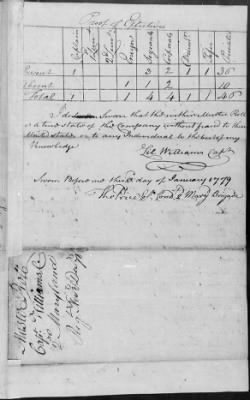 Proof of Effectives
Captain 1 Lieut 2 Lieut Ensign Sergeants Corporals Drum Fife Privates
Present 1 3 2 1 1 36
Absent 1 1 2 10
Total 1 1 4 4 1 1 46
I do Swear that the within Muster Roll
is a true state of the Company without fraud to these
United States or to any Individual to the best of my
Knowledge
Lil Williams Capt
Sworn Before me this day of January 1779
Tho Price Col. Comd. 2d Maryd Brigade
Muster Roll
Capt Williams Co
2d Maryland
Regt